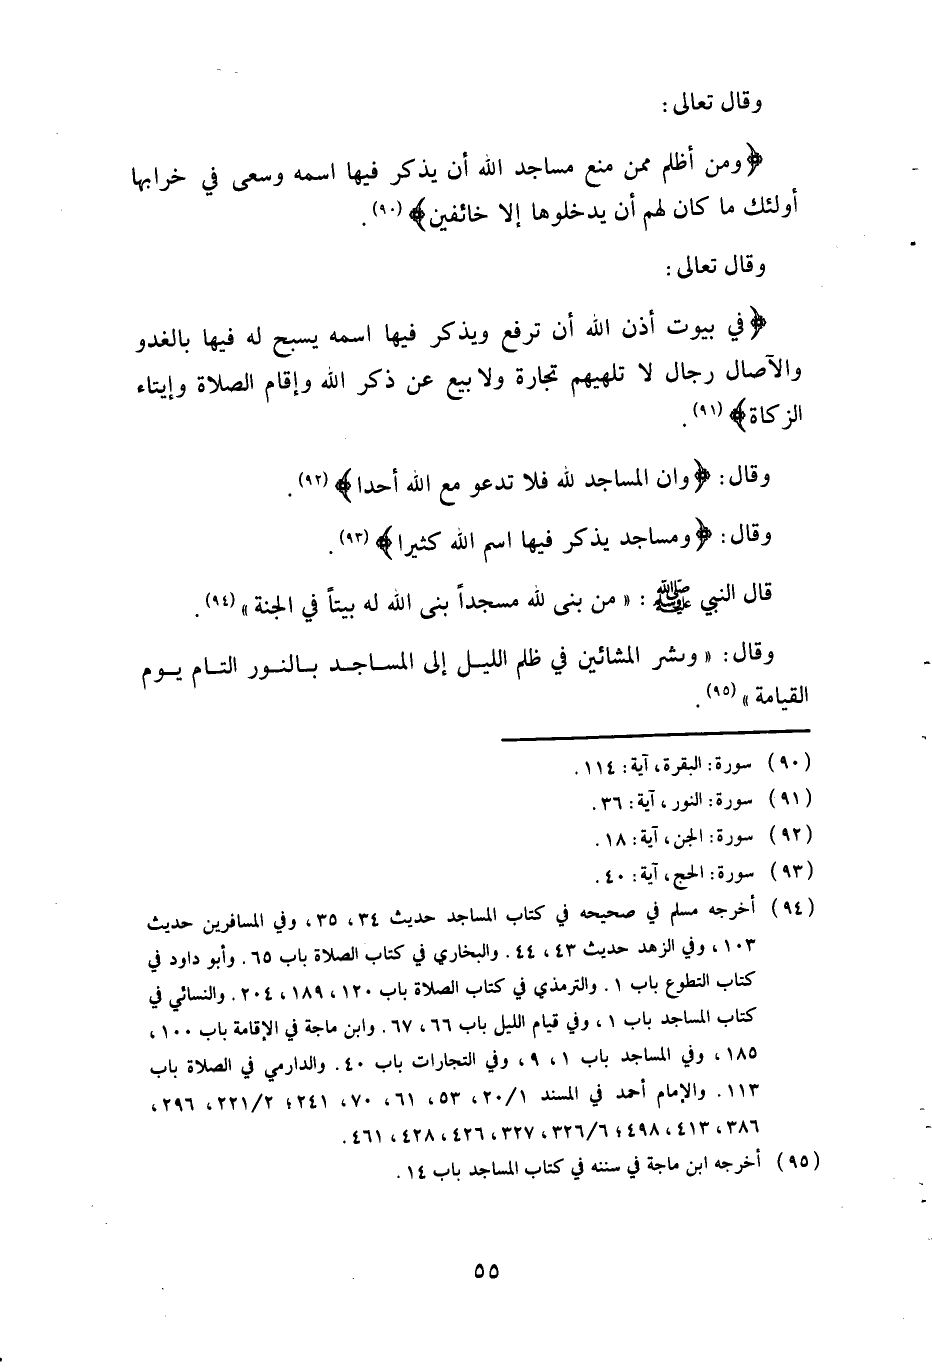 وقال تعالى:
﴿ومن أظلم ممن منع مساجد الله أن يذكر فيها اسمه وسعى في خرابها
أولئك ما كان لهم أن يدخلوها إلا خائفين﴾ (٩٠).
وقال تعالى:
﴿في بيوت أذن الله أن ترفع ويذكر فيها اسمه يسبح له فيها بالغدو
والآصال رجال لا تلهيهم تجارة ولا بيع عن ذكر الله وإقام الصلاة وإيتاء
الزكاة﴾ (٩١).
وقال: ﴿وان المساجد لله فلا تدعو مع الله أحدا﴾ (٩٢).
وقال: ﴿ومساجد يذكر فيها اسم الله كثيرا﴾ (٩٣).
قال النبي ﷺ : « من بنى لله مسجداً بنى الله له بيتاً في الجنة » (٩٤).
وقال: « وبشر المشائين في ظلم الليل إلى المساجد بالنور التام يوم
القيامة » (٩٥).
(٩٠) سورة: البقرة، آية: ١١٤.
(٩١) سورة: النور، آية: ٣٦.
(٩٢) سورة: الجن، آية: ١٨.
(٩٣) سورة: الحج، آية: ٤٠.
(٩٤) أخرجه مسلم في صحيحه في كتاب المساجد حديث ٣٤، ٣٥، وفي المسافرين حديث
١٠٣، وفي الزهد حديث ٤٣، ٤٤. والبخاري في كتاب الصلاة باب ٦٥. وأبو داود في
كتاب التطوع باب ١. والترمذي في كتاب الصلاة باب ١٢٠، ١٨٩، ٢٠٤. والنسائي في
كتاب المساجد باب ١، وفي قيام الليل باب ٦٦، ٦٧. وابن ماجة في الإقامة باب ١٠٠،
١٨٥، وفي المساجد باب ١، ٩، وفي التجارات باب ٤٠. والدارمي في الصلاة باب
١١٣. والإمام أحمد في المسند ٢٠/١، ٥٣، ٦١، ٧٠، ٢٤١؛ ٢٢١/٢، ٢٩٦،
٣٨٦، ٤١٣، ٤٩٨؛ ٣٢٦/٦، ٣٢٧، ٤٢٦، ٤٢٨، ٤٦١.
(٩٥) أخرجه ابن ماجة في سننه في كتاب المساجد باب ١٤.
٥٥